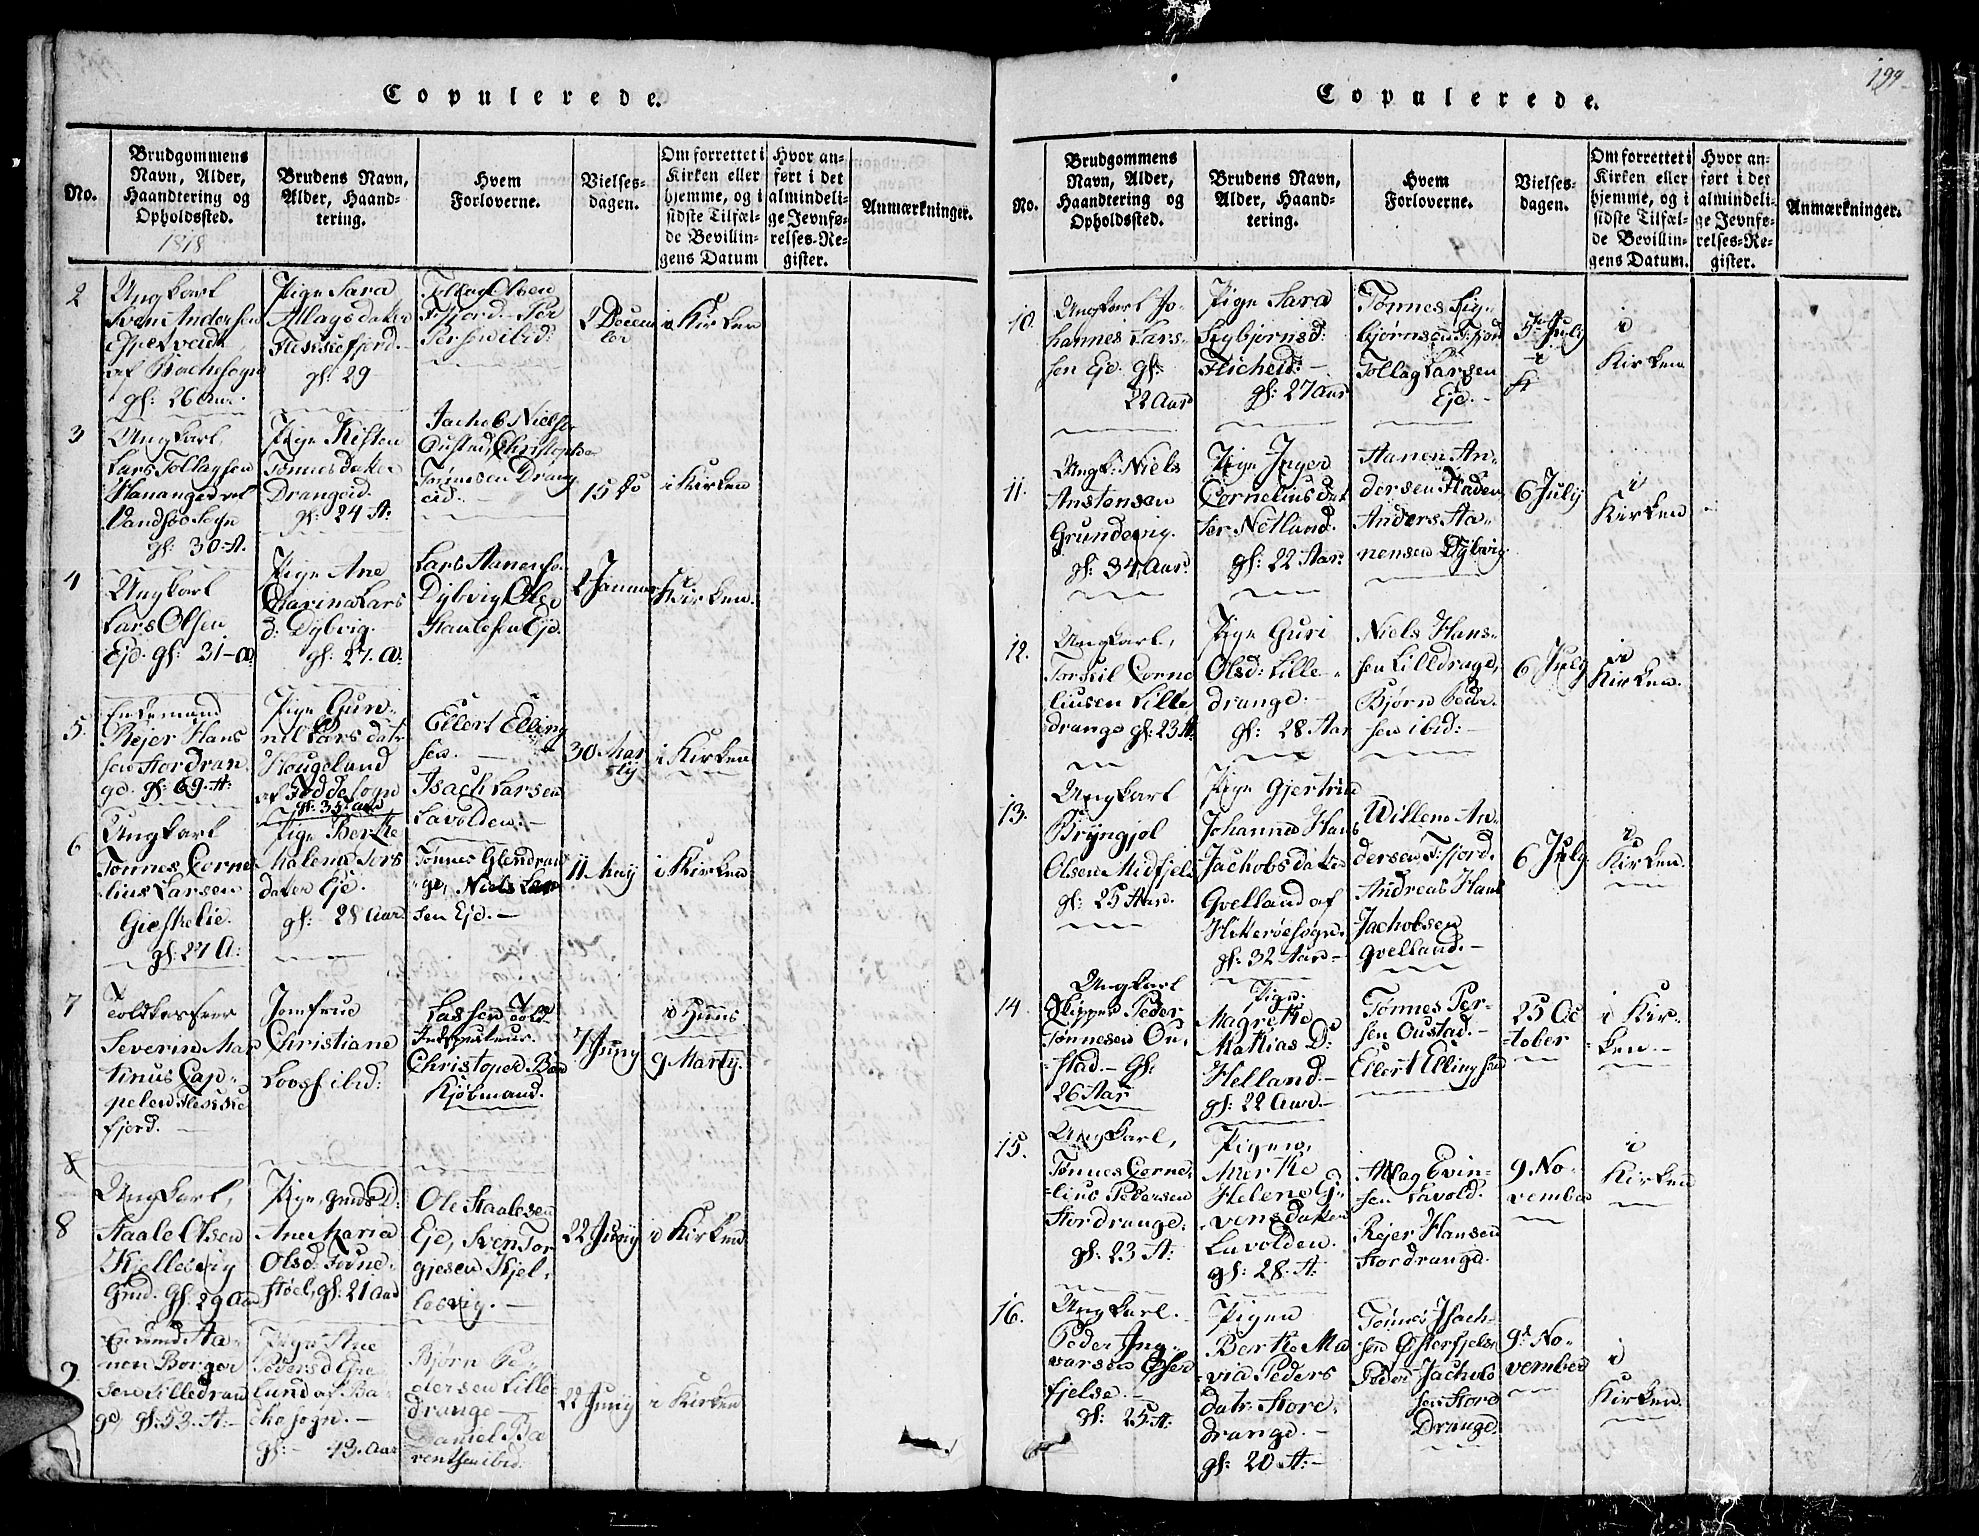 199
Copulerede.
No.
Brudgommens Navn, Alder, Haandtering og Opholdssted.
Brudens Navn, Alder, Haandtering.
Hvem Forloverne.
Vielsesdagen.
Om forrettet i Kirken eller hjemme, og i sidste Tilfælde Bevillingens Datum
Hvor anført i det almindelige Jevnførelses-Register.
Anmærkninger.
1818
2
Ungkarl
Sven Andersen
Espetveidt,
af Bachesogn
gl: 26 Aar.
Pige Sara
Atlagsdater
Fleskefjord.
gl: 29
Tollag Olsen
Fjord Per
Persen ibid:
2 Decem
ber
i Kirken
3
Ungkarl
Lars Tollagsen
Hananger
Vandsøe Sogn
gl: 30 A.
Pige Kisten
Tønnesdater
Drangeid.
gl: 24 A:
Jachob Niels
Oustad, Christopher
Tønnesen Drang
eid.
15 do
i Kirken
4
Ungkarl
Lars Olsen
Eje. gl: 31 A.
Pige Ane
Marina Lars
d: Dybvig.
gl: 27. A:
Lars Aanens.
Dybvig, Ole
Staalesen Eje.
2 Januar
i Kirken.
5.
Enkemand
Rejer Hans
sen Stordran
ge. gl: 69. A:
Pige Gun
nil Lars datr
Hougeland
af Foddesogn
gl: 35 Aar
Ellert Elling
sen.
Isach Larsen
Lavolden.
30 Mar
tij
i Kirken
6
Ungkarl
Tønnes Corne
lius Larsen
Gieshelie.
gl: 27 A:
Pige Berthe
Malena Tors
dater Eje.
gl: 28 Aar
Tønnes Glendran
ge, Niels Lar
sen Eje.
11 Maij
i Kirken
7
Toldkasserer
Severin Mar
tinus Cap
pelen Flekke
fjord.
Jomfrue
Christiane
Loos ibid:
Lassen Told
Inspecteur.
Christopher Beer
Kjøbmand.
7 Junij
i Huus
9 Martij.
8
8
Ungkarl,
Staale Olsen
Kjellesvig
Gmd. gl: 29 Aar
Pige, gmds D:
Ane Maria
Olsd:
støel, gl: 21 Aar
Ole Staalesen
Eje, Sven Tor
gjesen Kjel
lesvig.
22 Junij
i Kirken
9
Enkemd Aa
nen Borger
sen Lilledran
ge, gl: 53. A:
Pige Ane
Pedersd Gre
lund af Ba
chesogn.
gl: 43. Aar
Bjørn Pe
dersen Lille
drange
Daniel Be
rentsen ibid.
22 Junij
i Kirken
Copulerede.
No.
Brudgommens Navn, Alder, Haandtering og Opholdssted.
Brudens Navn, Alder, Haandtering.
Hvem Forloverne.
Vielsesdagen.
Om forrettet i Kirken eller hjemme, og i sidste Tilfælde Bevillingens Datum.
Hvor anført i det almindelige Jevnførelses-Register.
Anmærkninger.
10.
Ungkarl Jo
hannes Lars
sen Eje. gl:
22 Aar
Pige Sara
Sigbjørnsd:
Flicheid:
gl: 27 Aar
Tønnes Sig
bjørnsen Fjord
Tollag Larsen
Eje.
5te July
i
Kirken
11.
Ungk: Niels
Anstensen
Grundevig.
gl: 34 Aar.
Pige Inger
Cornelius dat
ter Netland.
gl: 22 Aar.
Aanen An
dersen Staden
Anders Aa
nensen Dybvig
6 July
i
Kirken
12.
Ungkarl,
Torkil Corne
liusen Lille
drange gl: 23 A:
Pige Guri
Olsd: Lille
drange.
gl: 28 Aar
Niels Hans
sen Lilledrange,
Bjørn Peder
sen ibid:
6 July
i
Kirken.
13.
Ungkarl
Bryngjel
Olsen Midfjeld
gl: 25 Aar.
Pige Gjertrue
Johanna Hans
Jachobsdater
Qvelland af
Hitterøesogn.
gl: 32 Aar
Willem An
dersen Fjord.
Andreas Hans
Jachobsen
Qvelland.
6 July
i
Kirken.
14.
Ungkarl
Skipper Peder
Tønnesen Ou
stad. gl:
26 Aar
Pige:
Magrethe
Mathias D:
Helland.
gl: 22 Aar.
Tønnes Per
sen Oustad.
Ellert Ellingsen
25 Oc
tober
i Kir
ken.
15.
Ungkarl,
Tønnes Corne
lius Pedersen
Stordrange.
gl: 23 A:
Pigen,
Merthe
Helene Ej
vensdater
Lavolden.
gl: 28. A:
Atlag Evin
sen Lavold.
Rejer Hansen
Stordrange.
9. No
vember
i
Kirken
16.
Ungkarl.
Peder Ing
varsen Øster
fjelse.
gl: 25 A:
Pigen
Berthe Ma
ria Peders
datr. Store
drange.
gl: 20 A:
Tønnes Isach
sen Østerfjelse
Peder Jachob
sen Stor
Drange.
9de No
vember
i
Kirken.